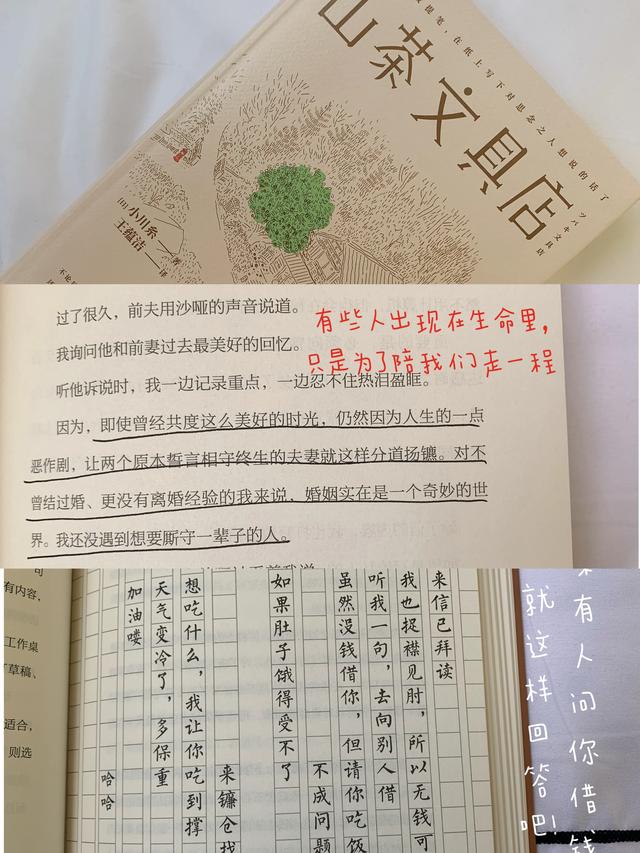 山茶文具店
提笔，在纸上写下对思念之人想说的话了
ツバキ文具店
[日]小川糸 著
王蕴洁 译
过了很久，前夫用沙哑的声音说道。
我询问他和前妻过去最美好的回忆。
听他诉说时，我一边记录重点，一边忍不住热泪盈眶。
因为，即使曾经共度这么美好的时光，仍然因为人生的一点
恶作剧，让两个原本誓言相守终生的夫妻就这样分道扬镳。对不
曾结过婚、更没有离婚经验的我来说，婚姻实在是一个奇妙的世
界。我还没遇到想要厮守一辈子的人。
有些人出现在生命里，
只是为了陪我们走一程
可
有内容，
工作桌
草稿、
适合，
则选
来信已拜读
我也捉襟见肘，所以无钱可
听我一句，去向别人借
虽然没钱借你，但请你吃饭
不成问题
如果肚子饿得受不了
来镰仓找
想吃什么，我让你吃到撑
天气变冷了，多保重
加油喽
哈哈
有人问你借钱
就这样回答吧！